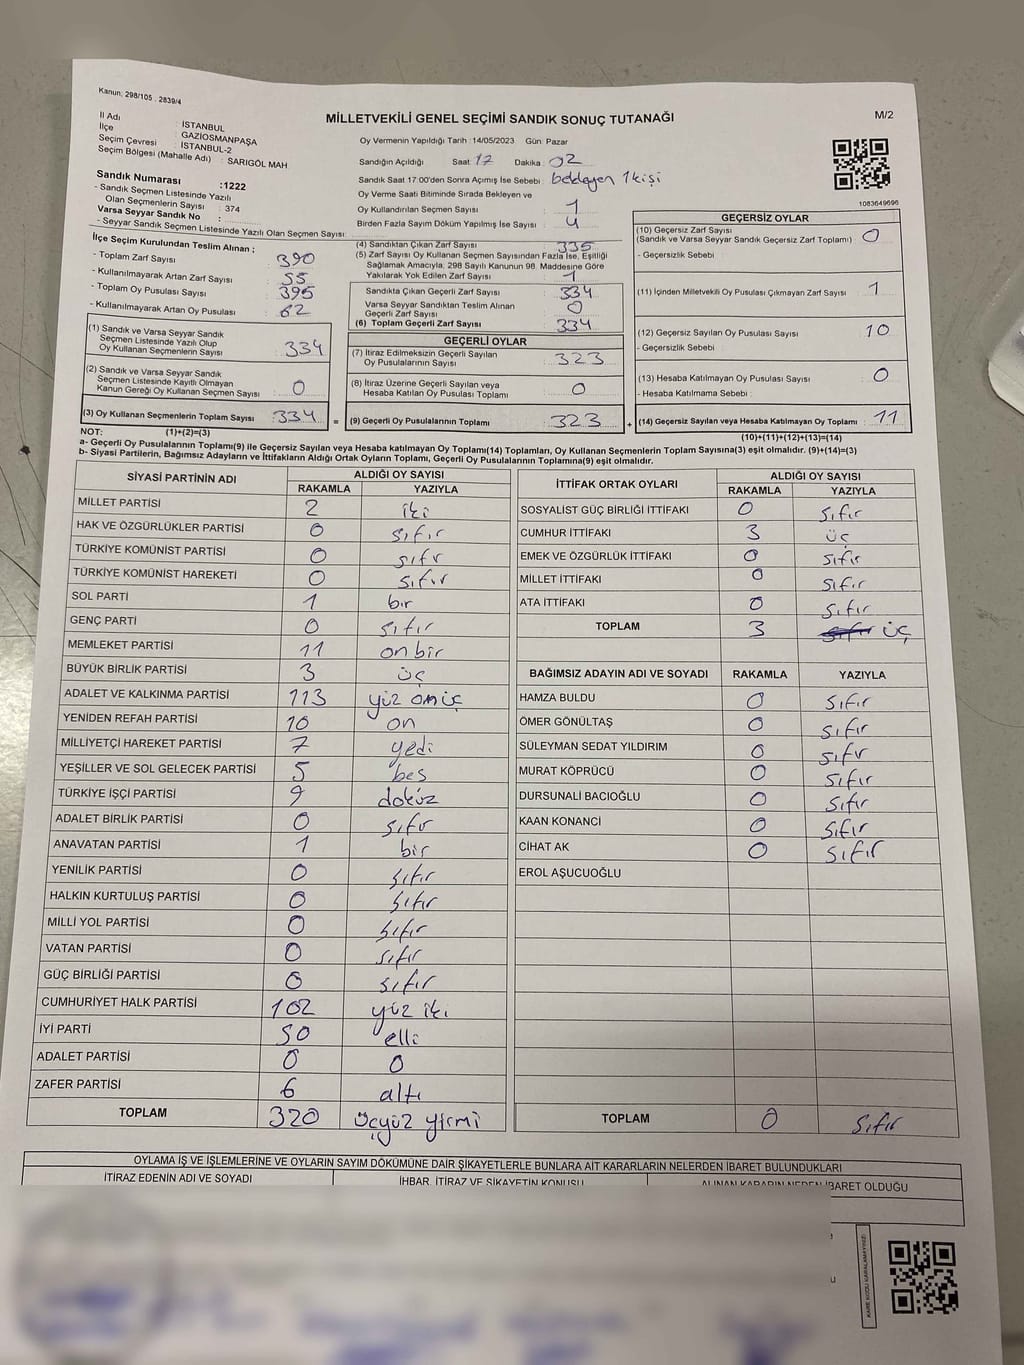 Kanun; 298/105 . 2839/4
MİLLETVEKİLİ GENEL SEÇİMİ SANDIK SONUÇ TUTANAĞI
M/2
İl Adı : İSTANBUL
İlçe : GAZİOSMANPAŞA
Seçim Çevresi : İSTANBUL-2
Seçim Bölgesi (Mahalle Adı) : SARIGÖL MAH
Sandık Numarası :1222
- Sandık Seçmen Listesinde Yazılı
Olan Seçmenlerin Sayısı : 374
Varsa Seyyar Sandık No :
- Seyyar Sandık Seçmen Listesinde Yazılı Olan Seçmen Sayısı:
Oy Vermenin Yapıldığı Tarih :14/05/2023 Gün: Pazar
Sandığın Açıldığı Saat: 17 Dakika: 02
Sandık Saat 17.00'den Sonra Açımış İse Sebebi : bekleyen 1 kişi
Oy Verme Saati Bitiminde Sırada Bekleyen ve
Oy Kullandırılan Seçmen Sayısı : 1
Birden Fazla Sayım Döküm Yapılmış İse Sayısı : 4
1083649696
İlçe Seçim Kurulundan Teslim Alınan ;
- Toplam Zarf Sayısı : 390
- Kullanılmayarak Artan Zarf Sayısı : 55
- Toplam Oy Pusulası Sayısı : 395
- Kullanılmayarak Artan Oy Pusulası : 62
(1) Sandık ve Varsa Seyyar Sandık
Seçmen Listesinde Yazılı Olup
Oy Kullanan Seçmenlerin Sayısı : 334
(2) Sandık ve Varsa Seyyar Sandık
Seçmen Listesinde Kayıtlı Olmayan
Kanun Gereği Oy Kullanan Seçmen Sayısı : 0
(3) Oy Kullanan Seçmenlerin Toplam Sayısı : 334 =
(4) Sandıktan Çıkan Zarf Sayısı : 335
(5) Zarf Sayısı Oy Kullanan Seçmen Sayısından Fazla İse, Eşitliği
Sağlamak Amacıyla, 298 Sayılı Kanunun 98. Maddesine Göre
Yakılarak Yok Edilen Zarf Sayısı : 1
Sandıkta Çıkan Geçerli Zarf Sayısı : 334
Varsa Seyyar Sandıktan Teslim Alınan
Geçerli Zarf Sayısı : 0
(6) Toplam Geçerli Zarf Sayısı : 334
GEÇERLİ OYLAR
(7) İtiraz Edilmeksizin Geçerli Sayılan
Oy Pusulalarının Sayısı : 323
(8) İtiraz Üzerine Geçerli Sayılan veya
Hesaba Katılan Oy Pusulası Toplamı : 0
(9) Geçerli Oy Pusulalarının Toplamı : 323 +
GEÇERSİZ OYLAR
(10) Geçersiz Zarf Sayısı
(Sandık ve Varsa Seyyar Sandık Geçersiz Zarf Toplamı) : 0
- Geçersizlik Sebebi :
(11) İçinden Milletvekili Oy Pusulası Çıkmayan Zarf Sayısı : 1
(12) Geçersiz Sayılan Oy Pusulası Sayısı : 10
- Geçersizlik Sebebi :
(13) Hesaba Katılmayan Oy Pusulası Sayısı : 0
- Hesaba Katılmama Sebebi :
(14) Geçersiz Sayılan veya Hesaba Katılmayan Oy Toplamı : 11
NOT: (1)+(2)=(3)
(10)+(11)+(12)+(13)=(14)
a- Geçerli Oy Pusulalarının Toplamı(9) ile Geçersiz Sayılan veya Hesaba katılmayan Oy Toplamı(14) Toplamları, Oy Kullanan Seçmenlerin Toplam Sayısına(3) eşit olmalıdır. (9)+(14)=(3)
b- Siyasi Partilerin, Bağımsız Adayların ve İttifakların Aldığı Ortak Oyların Toplamı, Geçerli Oy Pusulalarının Toplamına(9) eşit olmalıdır.
SİYASİ PARTİNİN ADI ALDIĞI OY SAYISI
RAKAMLA YAZIYLA
MİLLET PARTİSİ 2 iki
HAK VE ÖZGÜRLÜKLER PARTİSİ 0 sıfır
TÜRKİYE KOMÜNİST PARTİSİ 0 sıfr
TÜRKİYE KOMÜNİST HAREKETİ 0 sıfır
SOL PARTİ 1 bir
GENÇ PARTİ 0 sıfır
MEMLEKET PARTİSİ 11 on bir
BÜYÜK BİRLİK PARTİSİ 3 üç
ADALET VE KALKINMA PARTİSİ 113 yüz on üç
YENİDEN REFAH PARTİSİ 10 on
MİLLİYETÇİ HAREKET PARTİSİ 7 yedi
YEŞİLLER VE SOL GELECEK PARTİSİ 5 bes
TÜRKİYE İŞÇİ PARTİSİ 9 dokuz
ADALET BİRLİK PARTİSİ 0 sıfır
ANAVATAN PARTİSİ 1 bir
YENİLİK PARTİSİ 0 sıfır
HALKIN KURTULUŞ PARTİSİ 0 sıfır
MİLLİ YOL PARTİSİ 0 sıfır
VATAN PARTİSİ 0 sıfır
GÜÇ BİRLİĞİ PARTİSİ 0 sıfır
CUMHURİYET HALK PARTİSİ 102 yüz iki
İYİ PARTİ 50 elli
ADALET PARTİSİ 0 0
ZAFER PARTİSİ 6 altı
TOPLAM 320 üçyüz yirmi
İTTİFAK ORTAK OYLARI ALDIĞI OY SAYISI
RAKAMLA YAZIYLA
SOSYALİST GÜÇ BİRLİĞİ İTTİFAKI 0 sıfır
CUMHUR İTTİFAKI 3 üç
EMEK VE ÖZGÜRLÜK İTTİFAKI 0 sıfır
MİLLET İTTİFAKI 0 sıfır
ATA İTTİFAKI 0 sıfır
TOPLAM 3 sıfır üç
BAĞIMSIZ ADAYIN ADI VE SOYADI RAKAMLA YAZIYLA
HAMZA BULDU 0 sıfır
ÖMER GÖNÜLTAŞ 0 sıfır
SÜLEYMAN SEDAT YILDIRIM 0 sıfır
MURAT KÖPRÜCÜ 0 sıfır
DURSUNALİ BACIOĞLU 0 sıfır
KAAN KONANCİ 0 sıfır
CİHAT AK 0 sıfır
EROL AŞUCUOĞLU
TOPLAM 0 sıfır
OYLAMA İŞ VE İŞLEMLERİNE VE OYLARIN SAYIM DÖKÜMÜNE DAİR ŞİKAYETLERLE BUNLARA AİT KARARLARIN NELERDEN İBARET BULUNDUKLARI
İTİRAZ EDENİN ADI VE SOYADI İHBAR, İTİRAZ VE ŞİKAYETİN KONUSU ALINAN KARARIN NEDEN İBARET OLDUĞU
KARE KODU KARALAMAYINIZ!